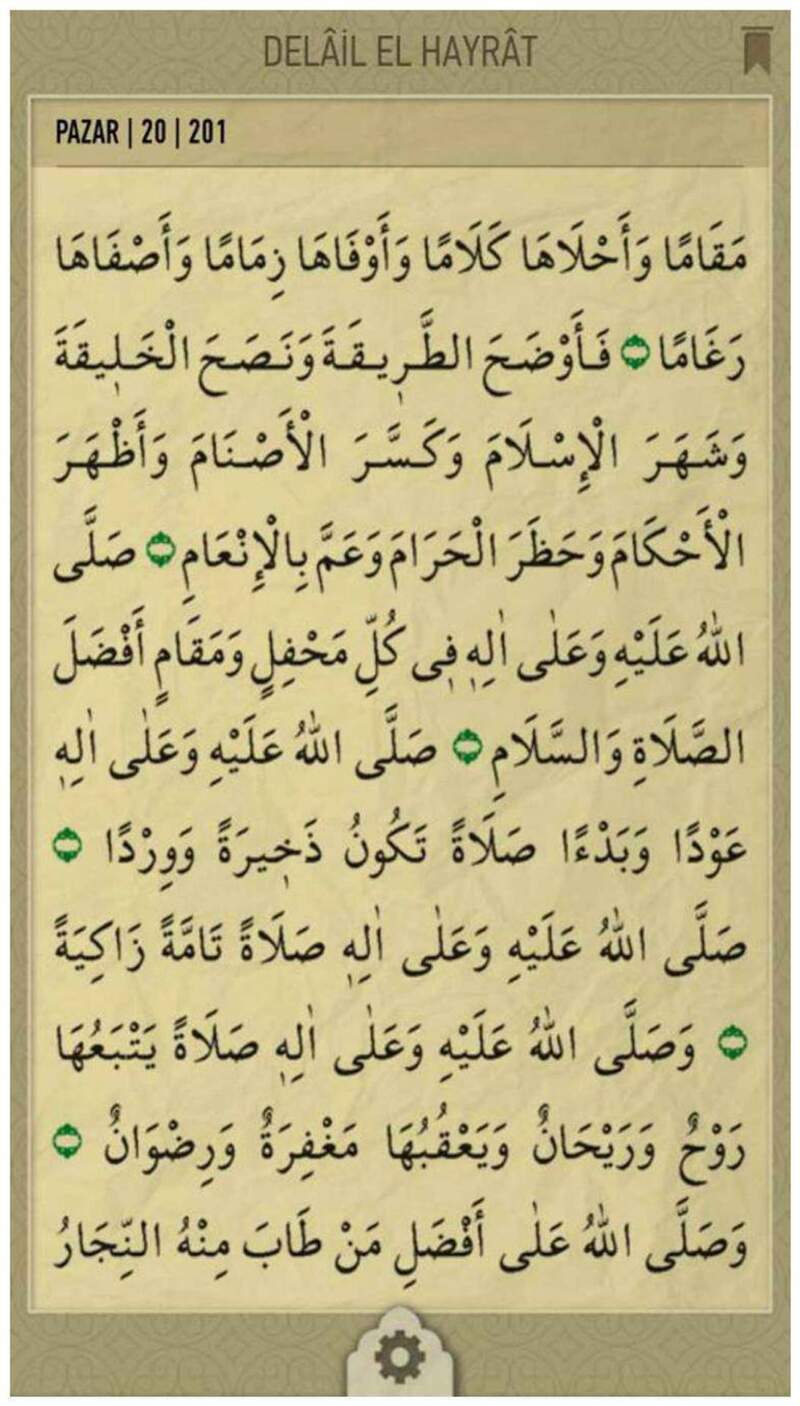 DELÂİL EL HAYRÂT
PAZAR | 20 | 201
مَقَامًا وَأَحْلَاهَا كَلَامًا وَأَوْفَاهَا زِمَامًا وَأَصْفَاهَا
رَغَامًا فَأَوْضَحَ الطَّرِيقَةَ وَنَصَحَ الْخَلِيقَةَ
وَشَهَرَ الْإِسْلَامَ وَكَسَّرَ الْأَصْنَامَ وَأَظْهَرَ
الْأَحْكَامَ وَحَظَرَ الْحَرَامَ وَعَمَّ بِالْإِنْعَامِ صَلَّى
اللهُ عَلَيْهِ وَعَلٰى اٰلِهٖ فٖى كُلِّ مَحْفِلٍ وَمَقَامٍ أَفْضَلَ
الصَّلَاةِ وَالسَّلَامِ صَلَّى اللهُ عَلَيْهِ وَعَلٰى اٰلِهٖ
عَوْدًا وَبَدْءًا صَلَاةً تَكُونُ ذَخٖيرَةً وَوِرْدًا
صَلَّى اللهُ عَلَيْهِ وَعَلٰى اٰلِهٖ صَلَاةً تَامَّةً زَاكِيَةً
وَصَلَّى اللهُ عَلَيْهِ وَعَلٰى اٰلِهٖ صَلَاةً يَتْبَعُهَا
رَوْحٌ وَرَيْحَانٌ وَيَعْقُبُهَا مَغْفِرَةٌ وَرِضْوَانٌ
وَصَلَّى اللهُ عَلٰى أَفْضَلِ مَنْ طَابَ مِنْهُ النِّجَارُ